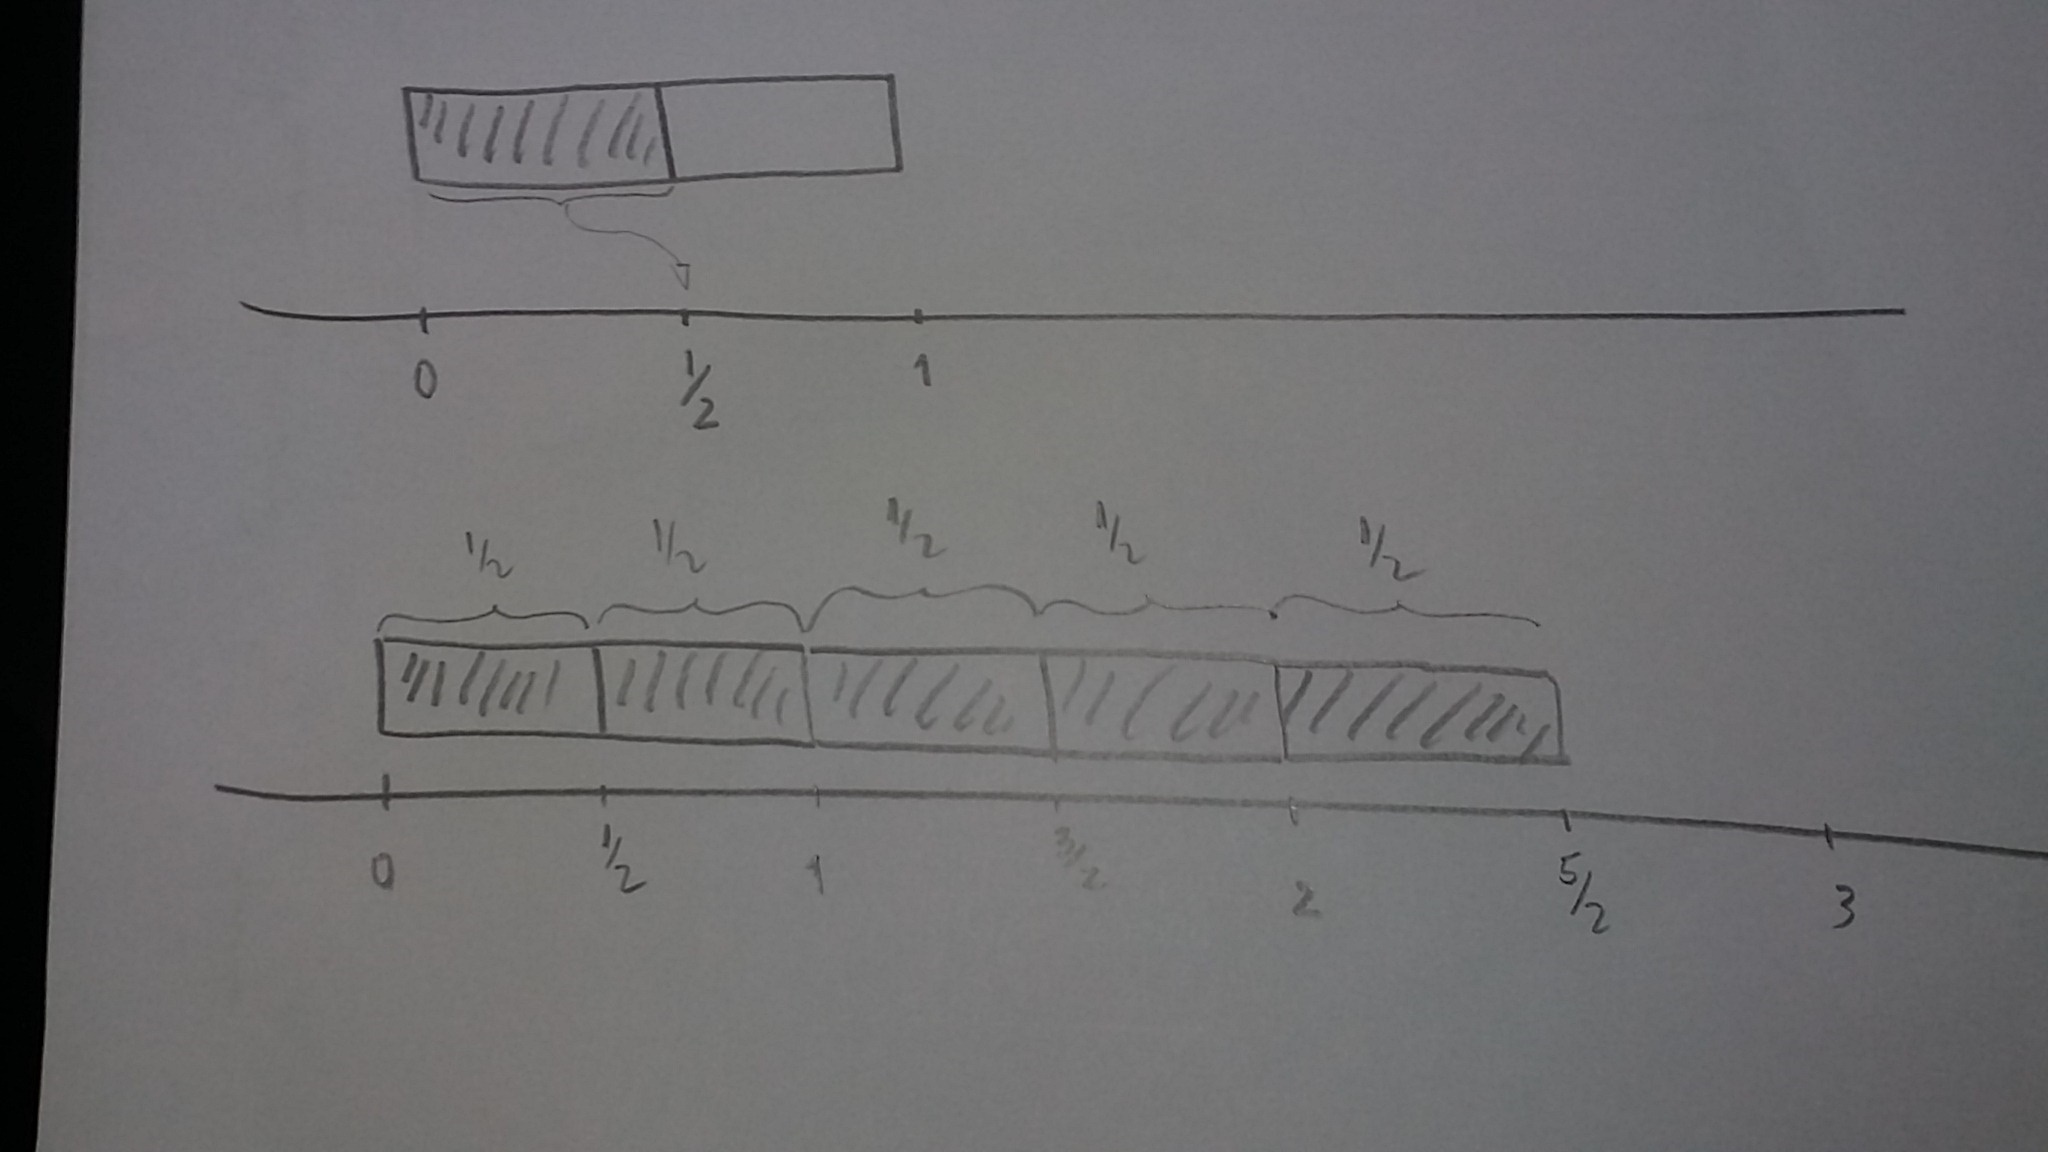 0 1/2 1
1/2 1/2 1/2 1/2 1/2
0 1/2 1 3/2 2 5/2 3